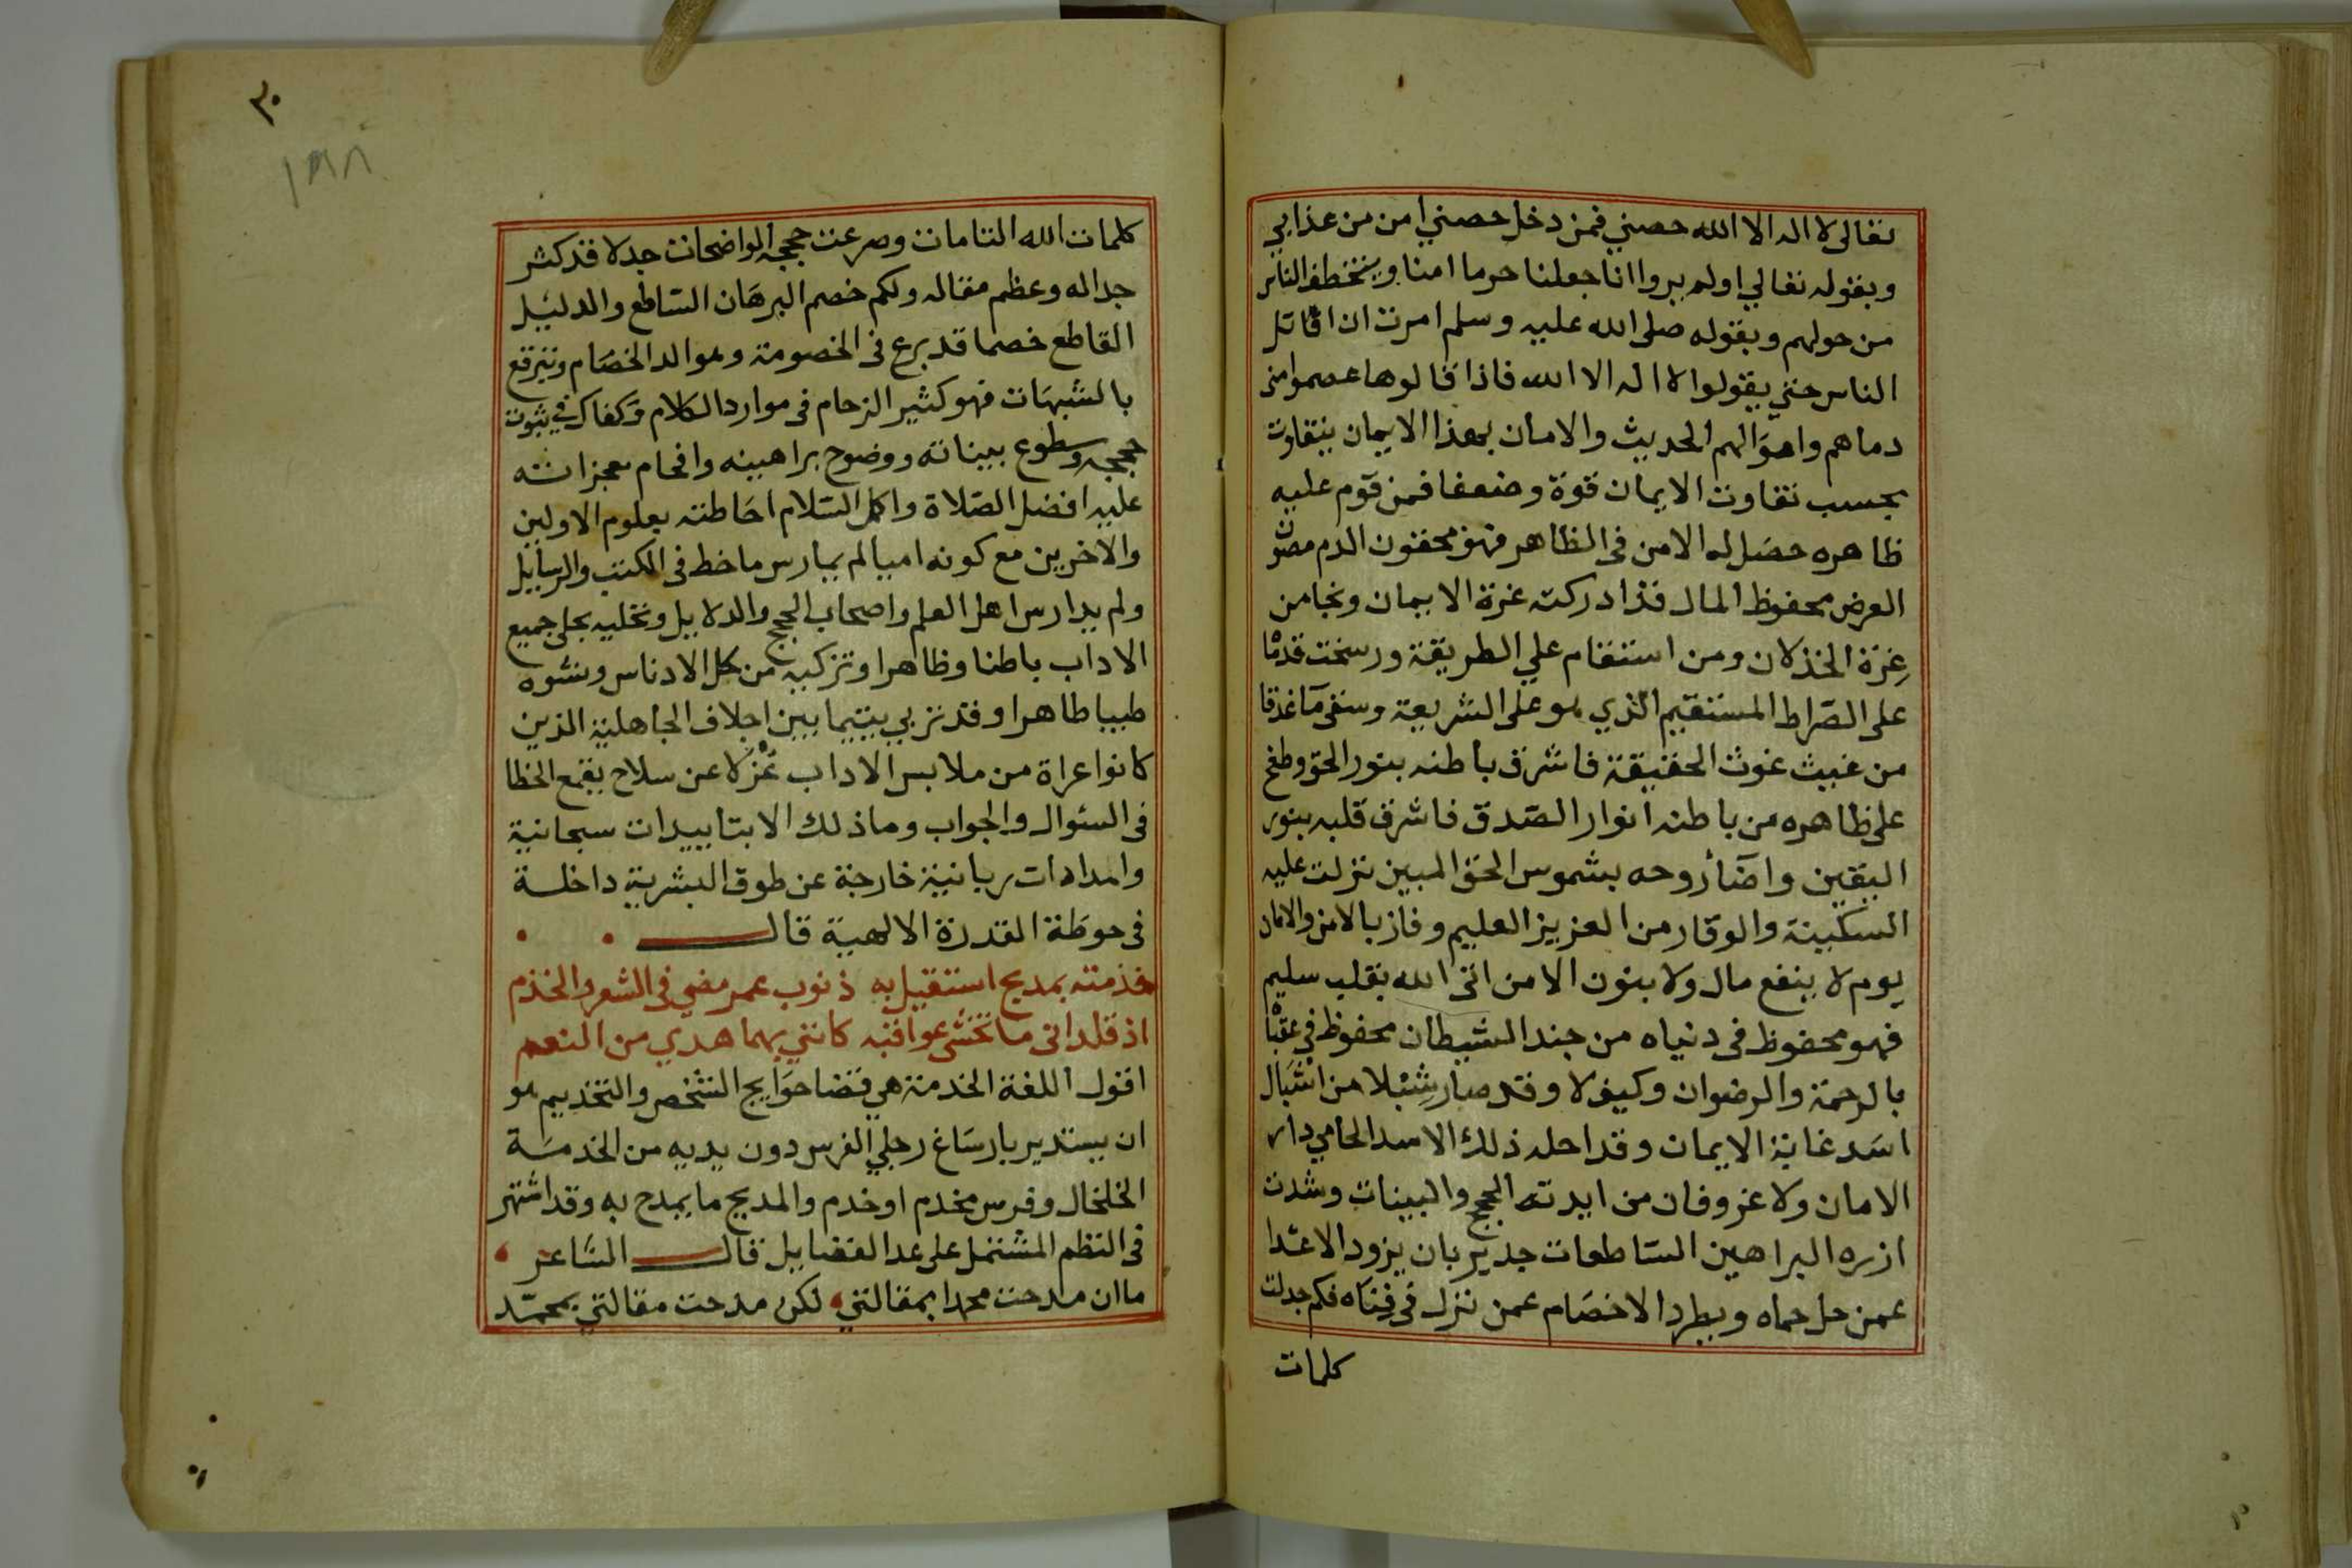 تعالى لا اله الا الله حصني فمن دخل حصني امن من عذابي
وبقوله تعالي اولم يروا انا جعلنا حرما امنا ويتخطف الناس
من حولهم وبقوله صلى الله عليه وسلم امرت ان اقاتل
الناس حتي يقولوا لا اله الا الله فاذا قالوها عصموا مني
دماهم واموالهم الحديث والامان بهذا الايمان يتفاوت
بحسب تفاوت الايمان قوة وضعفا فمن قوم عليه
ظاهره حصل له الامن في الظاهر فهو محقون الدم مصون
العرض محفوظ المال قد ادركته عزة الايمان ونجا من
غرة الخذلان ومن استقام علي الطريقة ورسخت قدمًا
على الصراط المستقيم الذي هو على الشريعة وسقى مآ غدقا
من غيث غوث الحقيقة فاشرق باطنه بنور الحق وطفح
على ظاهره من باطنه انوار الصدق فاشرق قلبه بنور
اليقين واضآ روحه بشموس الحق المبين نزلت عليه
السكينة والوقار من العزيز العليم وفاز بالامن والامان
يوم لا ينفع مال ولا بنون الا من اتى الله بقلب سليم
فهو محفوظ في دنياه من جند الشيطان محفوظ في عقباه
بالرحمة والرضوان وكيف لا وقد صار شبلا من اشبال
اسد غابة الايمان وقد احله ذلك الاسد الحامي دار
الامان ولا غرو فان من ايدته الحجج والبينات وشدت
ازره البراهين الساطعات جدير بان يزود الاعدا
عمن حل حماه ويطرد الاخصام عمن نزل في فناه فكم جدلت
كلمات
٣٠
١٩٨
كلمات الله التامات وصرعت حججه الواضحات جدلا قد كثر
جداله وعظم مقاله ولكم خصم البرهان الساطع والدليل
القاطع خصما قد برع في الخصومة وهو الد الخصام وتبرقع
بالشبهات فهو كثير الزحام في موارد الكلام وكفاك في ثبوت
حججه وسطوع بيناته ووضوح براهينه وافحام معجزاته
عليه افضل الصلاة واكمل السلام احاطته بعلوم الاولين
والاخرين مع كونه اميا لم يمارس ما خط في الكتب والرسايل
ولم يدارس اهل العلم واصحاب الحجج والدلايل وتحليه بحلى جميع
الاداب باطنا وظاهرا وتزكيه من كل الادناس ونشوه
طيبا طاهرا وقد تربي يتيما بين اجلاف الجاهلية الذين
كانوا عراة من ملابس الاداب عُزْلا عن سلاح يقمع الخطا
في السئوال والجواب وما ذلك الا بتاييدات سبحانية
وامدادات ربانية خارجة عن طوق البشرية داخلة
في حوطة القدرة الالهية قال
خدمته بمديح استقيل به ذنوب عمر مضي في الشعر والخدم
اذ قلداني ما تخشى عواقبه كانني بهما هدي من النعم
اقول اللغة الخدمة هي قضا حوايج الشخص والتخديم هو
ان يستدير بارساغ رجلي الفرس دون يديه من الخدمة
الخلخال وفرس مخدم او خدم والمديح ما يمدح به وقد اشتهر
في النظم المشتمل على عد الفضايل قال الشاعر
ما ان مدحت محمدا بمقالتي لكن مدحت مقالتي بمحمد